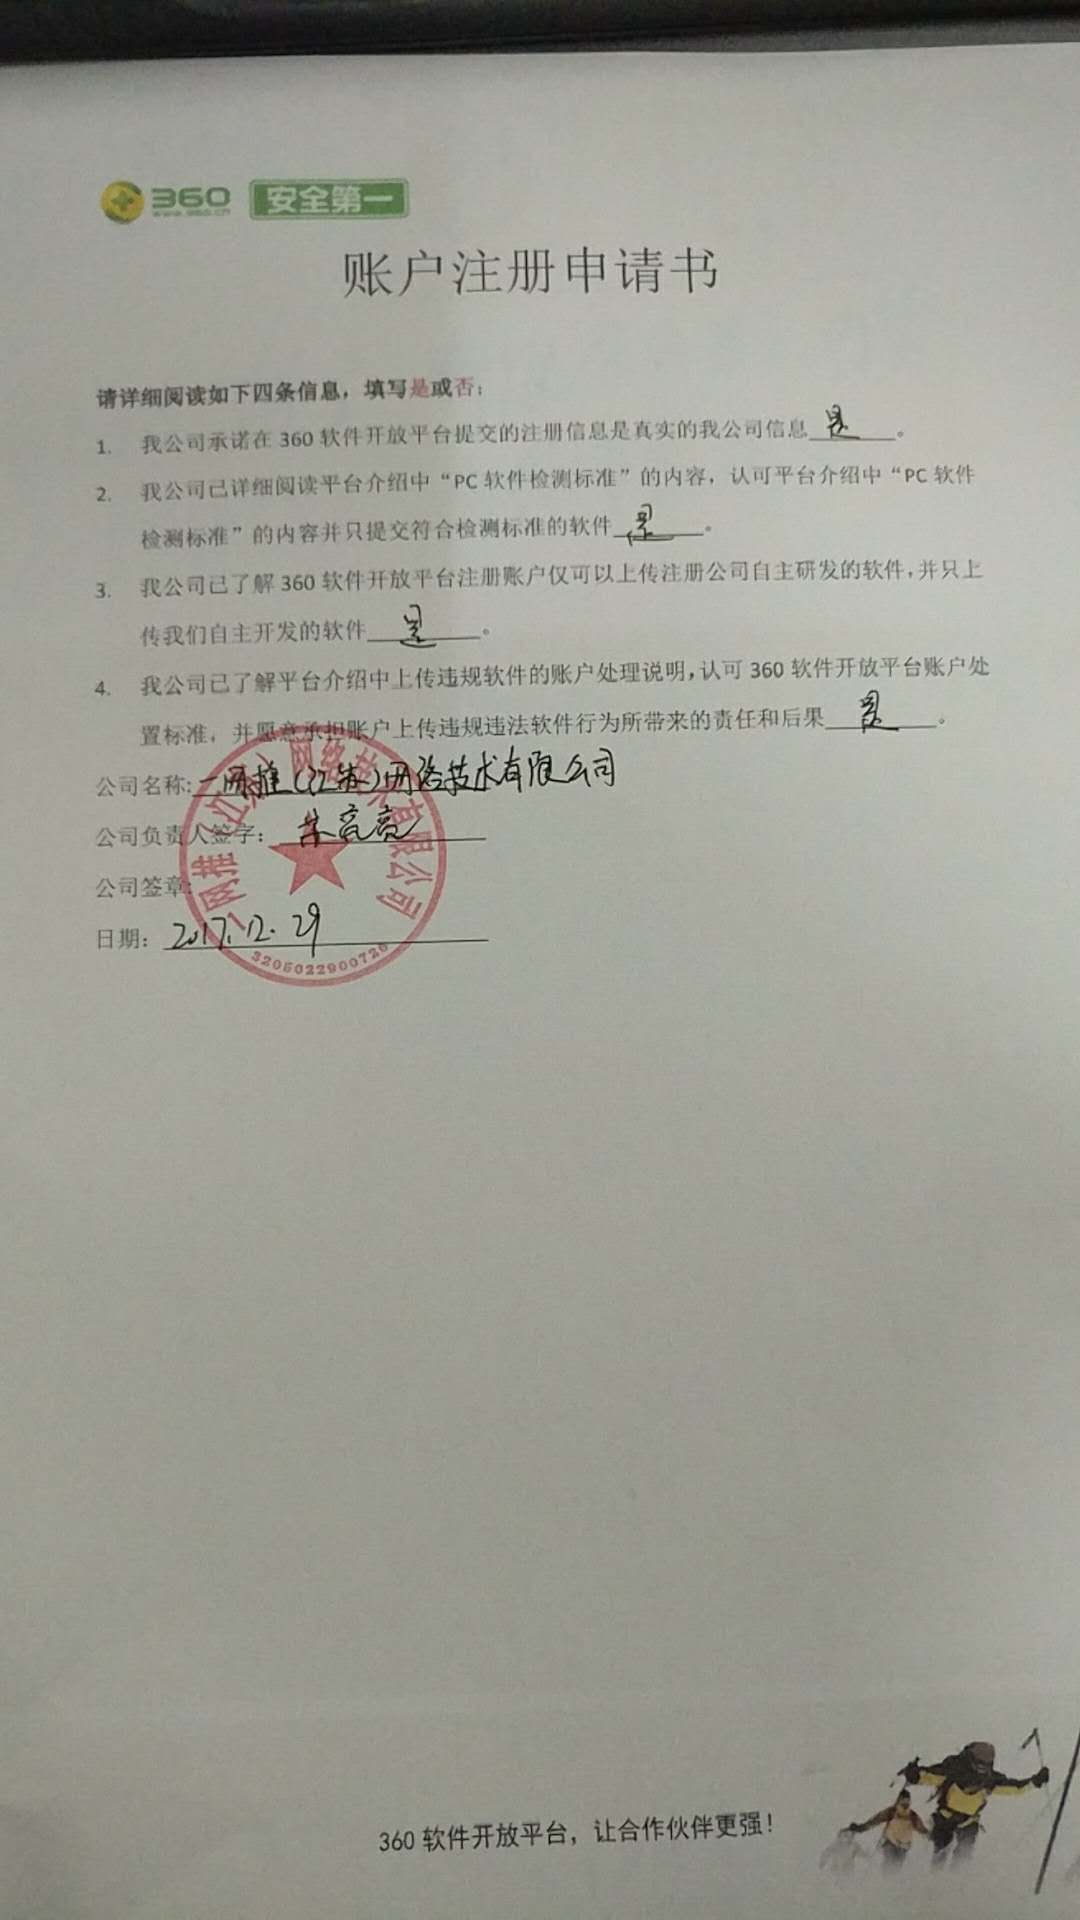 360 安全第一
www.360.cn
账户注册申请书
请详细阅读如下四条信息，填写是或否：
1. 我公司承诺在 360 软件开放平台提交的注册信息是真实的我公司信息是。
2. 我公司已详细阅读平台介绍中“PC 软件检测标准”的内容，认可平台介绍中“PC 软件
检测标准”的内容并只提交符合检测标准的软件是。
3. 我公司已了解 360 软件开放平台注册账户仅可以上传注册公司自主研发的软件，并只上
传我们自主开发的软件是。
4. 我公司已了解平台介绍中上传违规软件的账户处理说明，认可 360 软件开放平台账户处
置标准，并愿意承担账户上传违规违法软件行为所带来的责任和后果是。
公司名称：一网推（江苏）网络技术有限公司
公司负责人签字：
公司签章：
一网推（江苏）网络技术有限公司
3205022900726
日期：2017.12.29
360 软件开放平台，让合作伙伴更强！